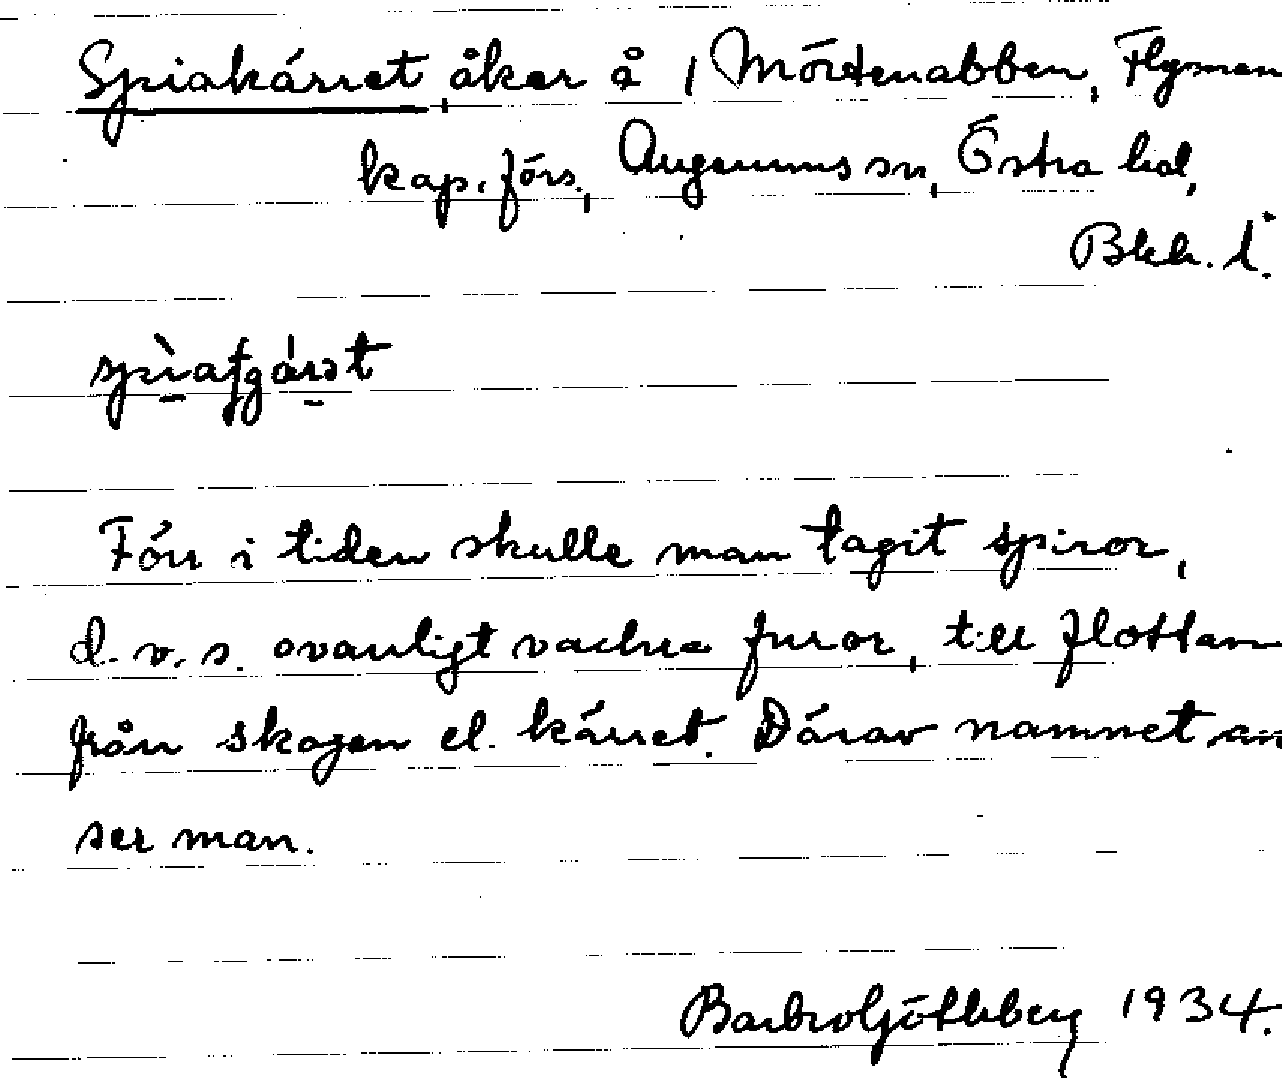 Spiakärret, åker å 1 Mördenabben, Flymen
kap. förs., Augerums sn, Östra hd,
Bkh. l.
Förr i tiden skulle man tagit spiror,
d.v.s. ovanligt vackra furor, till flottan
från skogen el. kärret. Därav namnet, an
ser man.
Barbro Götleberg 1934.